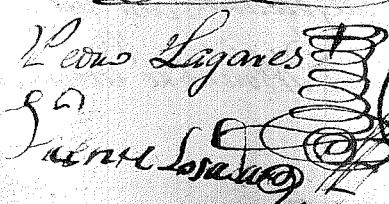 Pedro Lagares
Sn
Vicente Losada